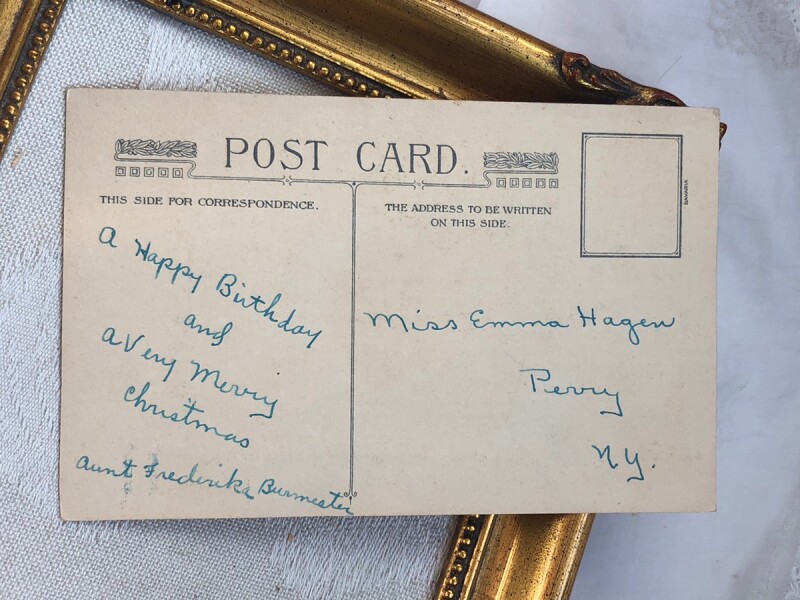 POST CARD.
THIS SIDE FOR CORRESPONDENCE.
THE ADDRESS TO BE WRITTEN
ON THIS SIDE.
BAVARIA
A Happy Birthday
and
a Very Merry
Christmas
Aunt Frederika Burmester
Miss Emma Hagen
Perry
NY.